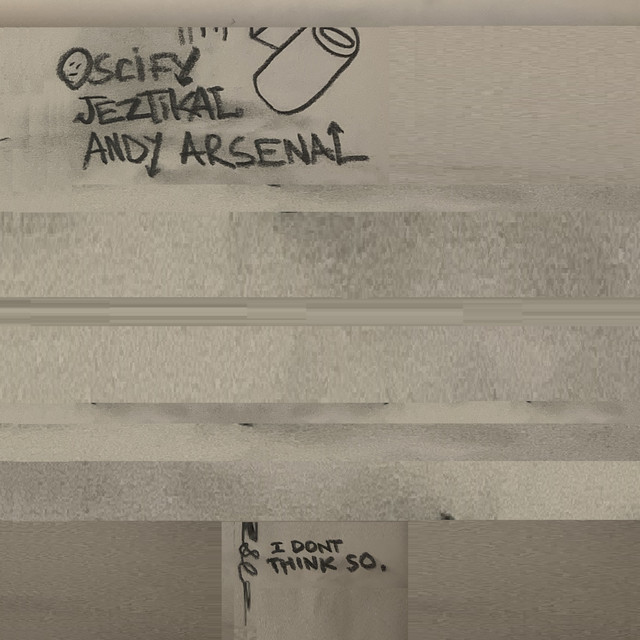 OSCIFY
JEZTIKAL
ANDY ARSENAL
I DONT
THINK SO.